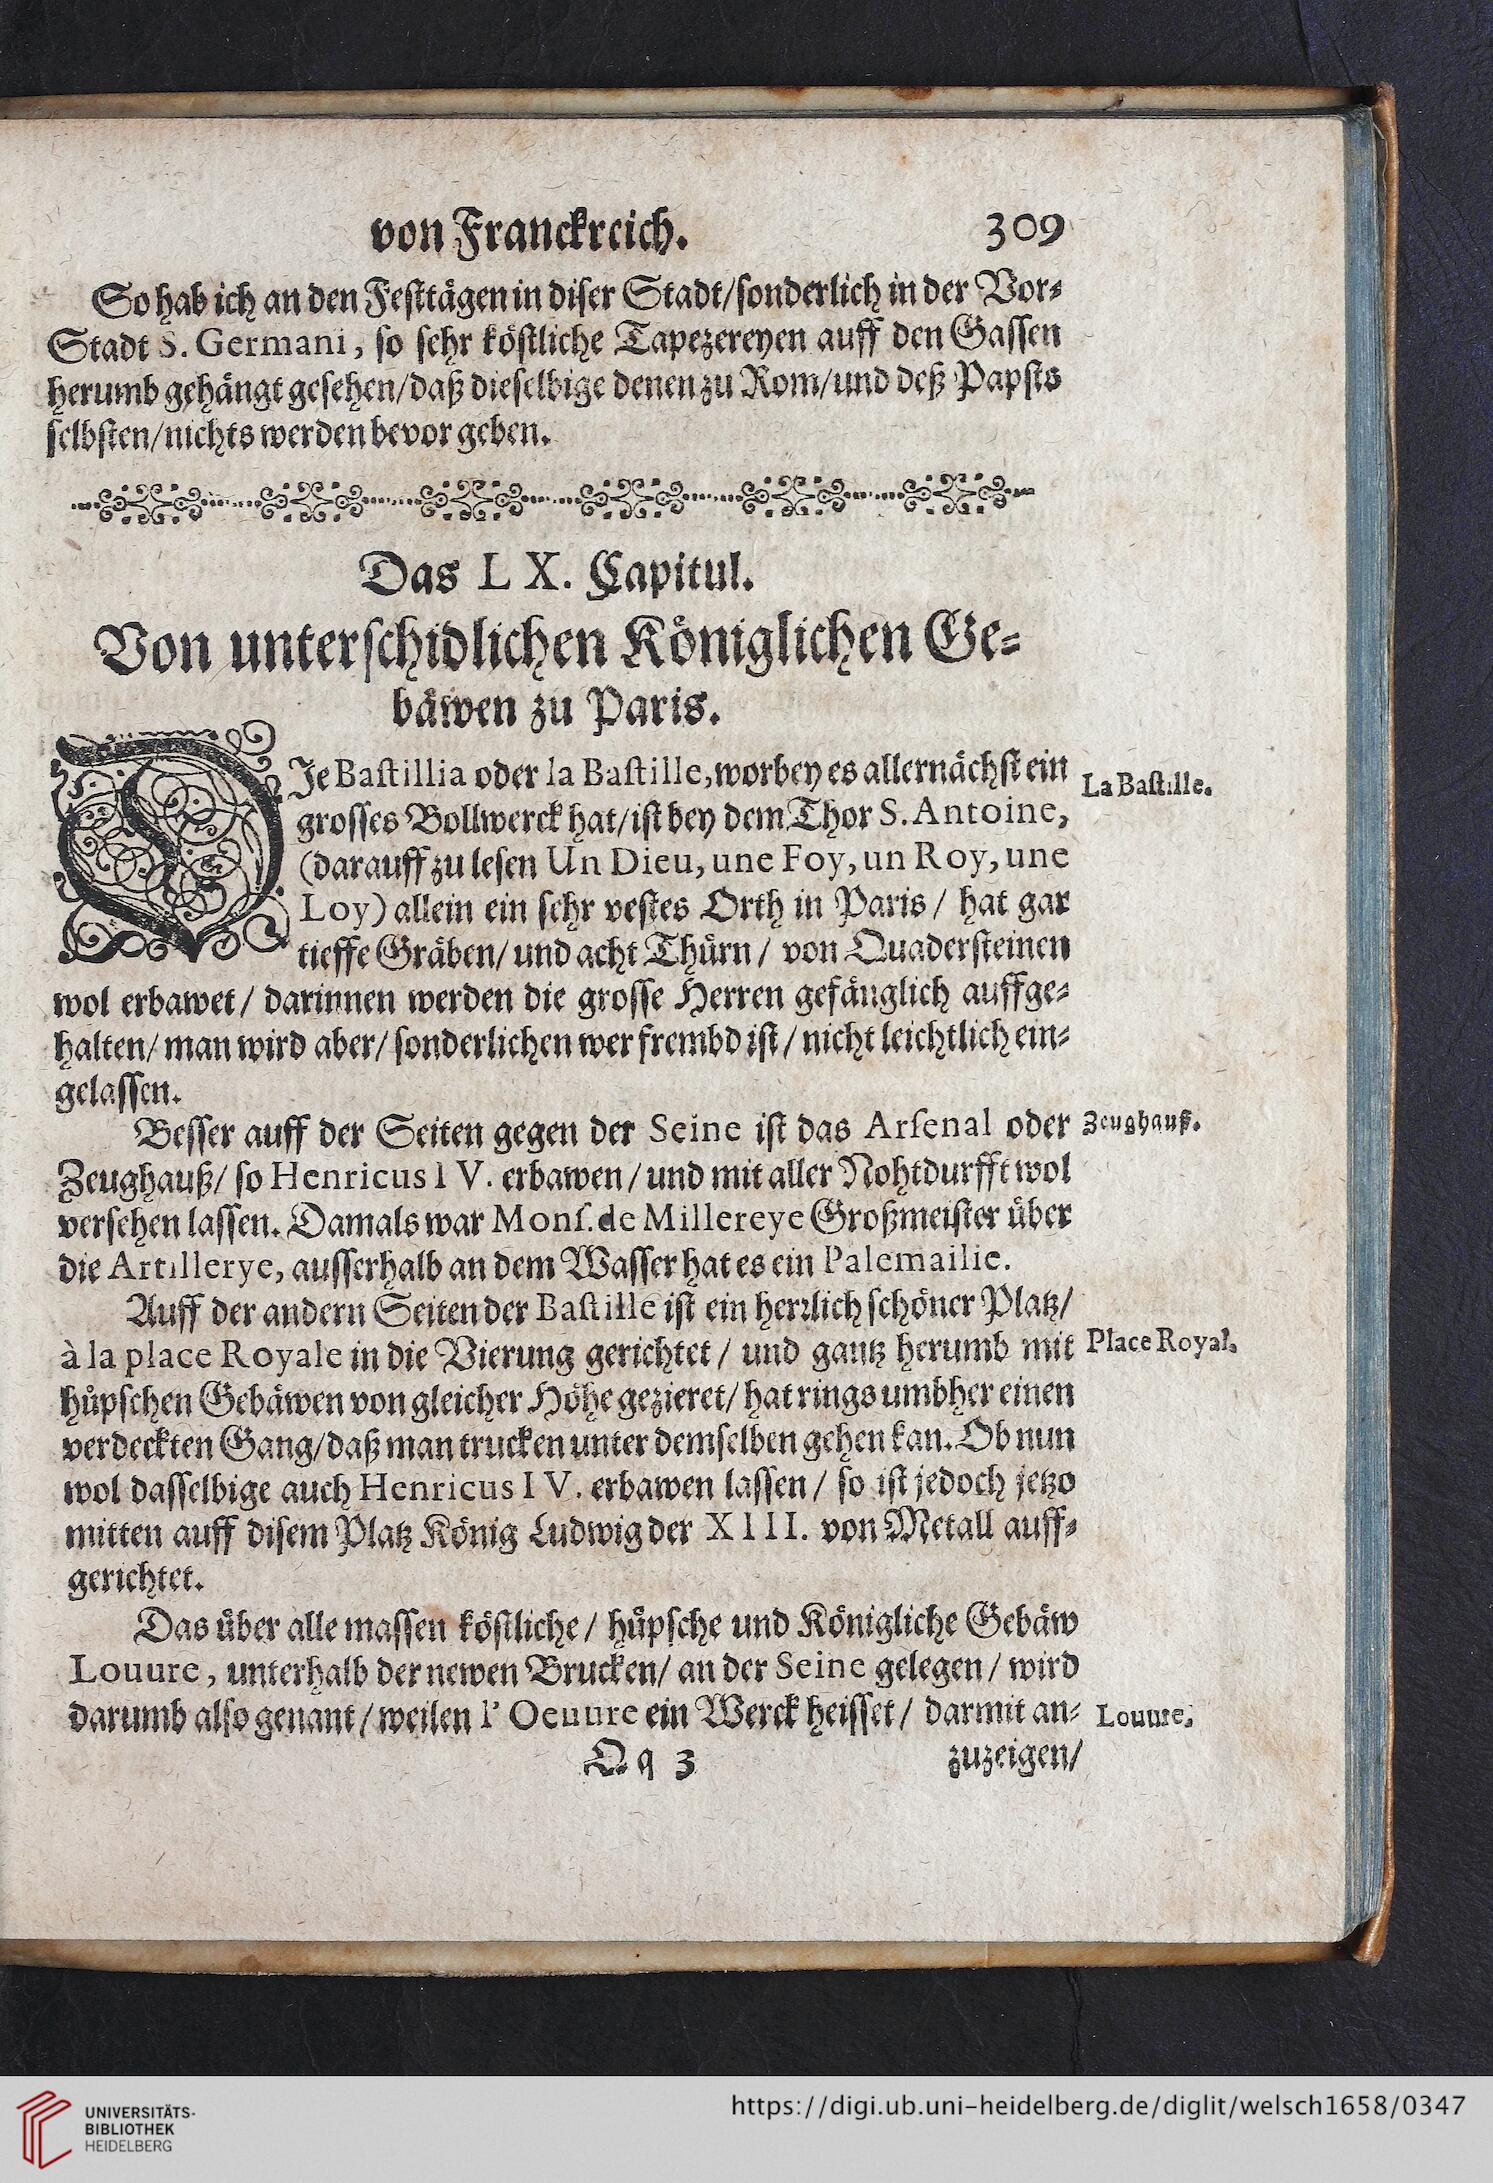 von Franckreich. 309
So hab ich an den Festtägen in diser Stadt/sonderlich in der Vor-
Stadt S. Germani, so sehr köstliche Tapezereyen auff den Gassen
herumb gehängt gesehen/daß dieselbige denen zu Rom/und deß Papsts
selbsten/nichts werden bevor geben.
Das LX. Capitul.
Von unterschidlichen Königlichen Ge-
bäwen zu Paris.
DIe Bastillia oder la Bastille, worbey es allernächst ein
La Bastille.
grosses Bollwerck hat/ist bey dem Thor S. Antoine,
(darauff zu lesen Un Dieu, une Foy, un Roy, une
Loy) allein ein sehr vestes Orth in Paris/ hat gar
tieffe Gräben/ und acht Thürn/ von Quadersteinen
wol erbawet/ darinnen werden die grosse Herren gefänglich auffge-
halten/ man wird aber/ sonderlichen wer frembd ist/ nicht leichtlich ein-
gelassen.
Besser auff der Seiten gegen der Seine ist das Arsenal oder
Zeughauß.
Zeughauß/ so Henricus IV. erbawen/ und mit aller Nohtdurfft wol
versehen lassen. Damals war Mons. de Millereye Großmeister über
die Artillerye, ausserhalb an dem Wasser hat es ein Palemailie.
Auff der andern Seiten der Bastille ist ein herrlich schöner Platz/
à la place Royale in die Vierung gerichtet/ und gantz herumb mit
Place Royal.
hüpschen Gebäwen von gleicher Höhe gezieret/ hat rings umbher einen
verdeckten Gang/daß man trucken unter demselben gehen kan. Ob nun
wol dasselbige auch Henricus IV. erbawen lassen/ so ist jedoch jetzo
mitten auff disem Platz König Ludwig der XIII. von Metall auff-
gerichtet.
Das über alle massen köstliche/ hüpsche und Königliche Gebäw
Louure, unterhalb der newen Brucken/ an der Seine gelegen/ wird
darumb also genant/ weilen l' Oeuure ein Werck heisset/ darmit an-
Louure.
Qq 3 zuzeigen/
UNIVERSITÄTS-
BIBLIOTHEK
HEIDELBERG
https://digi.ub.uni-heidelberg.de/diglit/welsch1658/0347